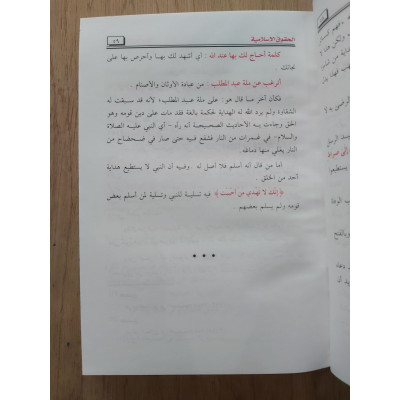 الحقوق الإسلامية
٥٩
كلمة أحاج لك بها عند الله : أي أشهد لك بها وأحرص بها على
نجاتك .
أترغب عن ملة عبد المطلب : من عبادة الأوثان والأصنام .
فكان آخر ما قال هو : على ملة عبد المطلب؛ لأنه قد سبقت له
الشقاوة ولم يرد الله له الهداية لحكمة بالغة فقد مات على دين قومه وهو
الحق وجاءت به الأحاديث الصحيحة أنه رآه - أي النبي عليه الصلاة
والسلام - في غمرات من النار فشفع فيه حتى صار في ضحضاح من
النار يغلي منها دماغه .
أما من قال أنه أسلم فلا أصل له . وفيه أن النبي لا يستطيع هداية
أحد من الخلق .
﴿ إنك لا تهدي من أحببت ﴾ فيه تسلية للنبي وتسلية لمن أسلم بعض
قومه ولم يسلم بعضهم .